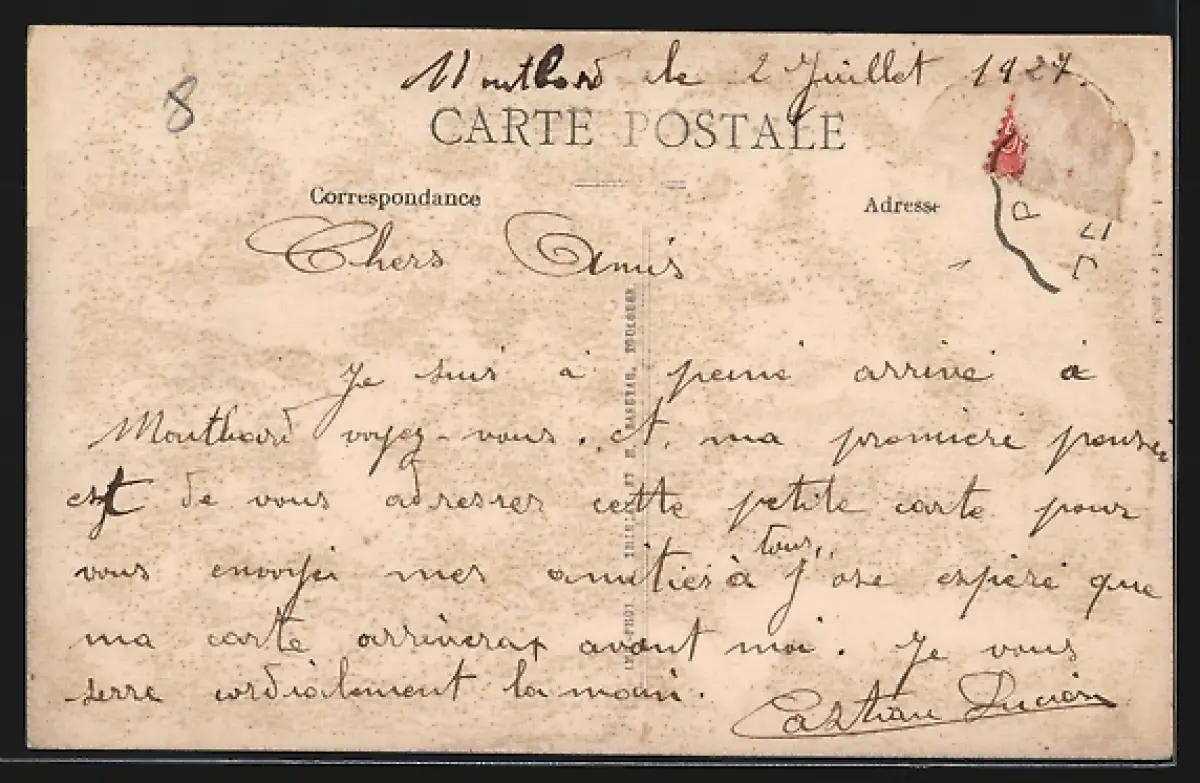 8
Montbard le 2 Juillet 1927.
CARTE POSTALE
Correspondance
Adresse
Chers Amis
Je suis à peine arrivé à
Montbard voyez-vous. et, ma première pensée
est de vous adresser cette petite carte pour
vous envoyer mes amitiés à tous,, J'ose espéré que
ma carte arriverat avant moi. Je vous
serre cordialement la main.
Lucien